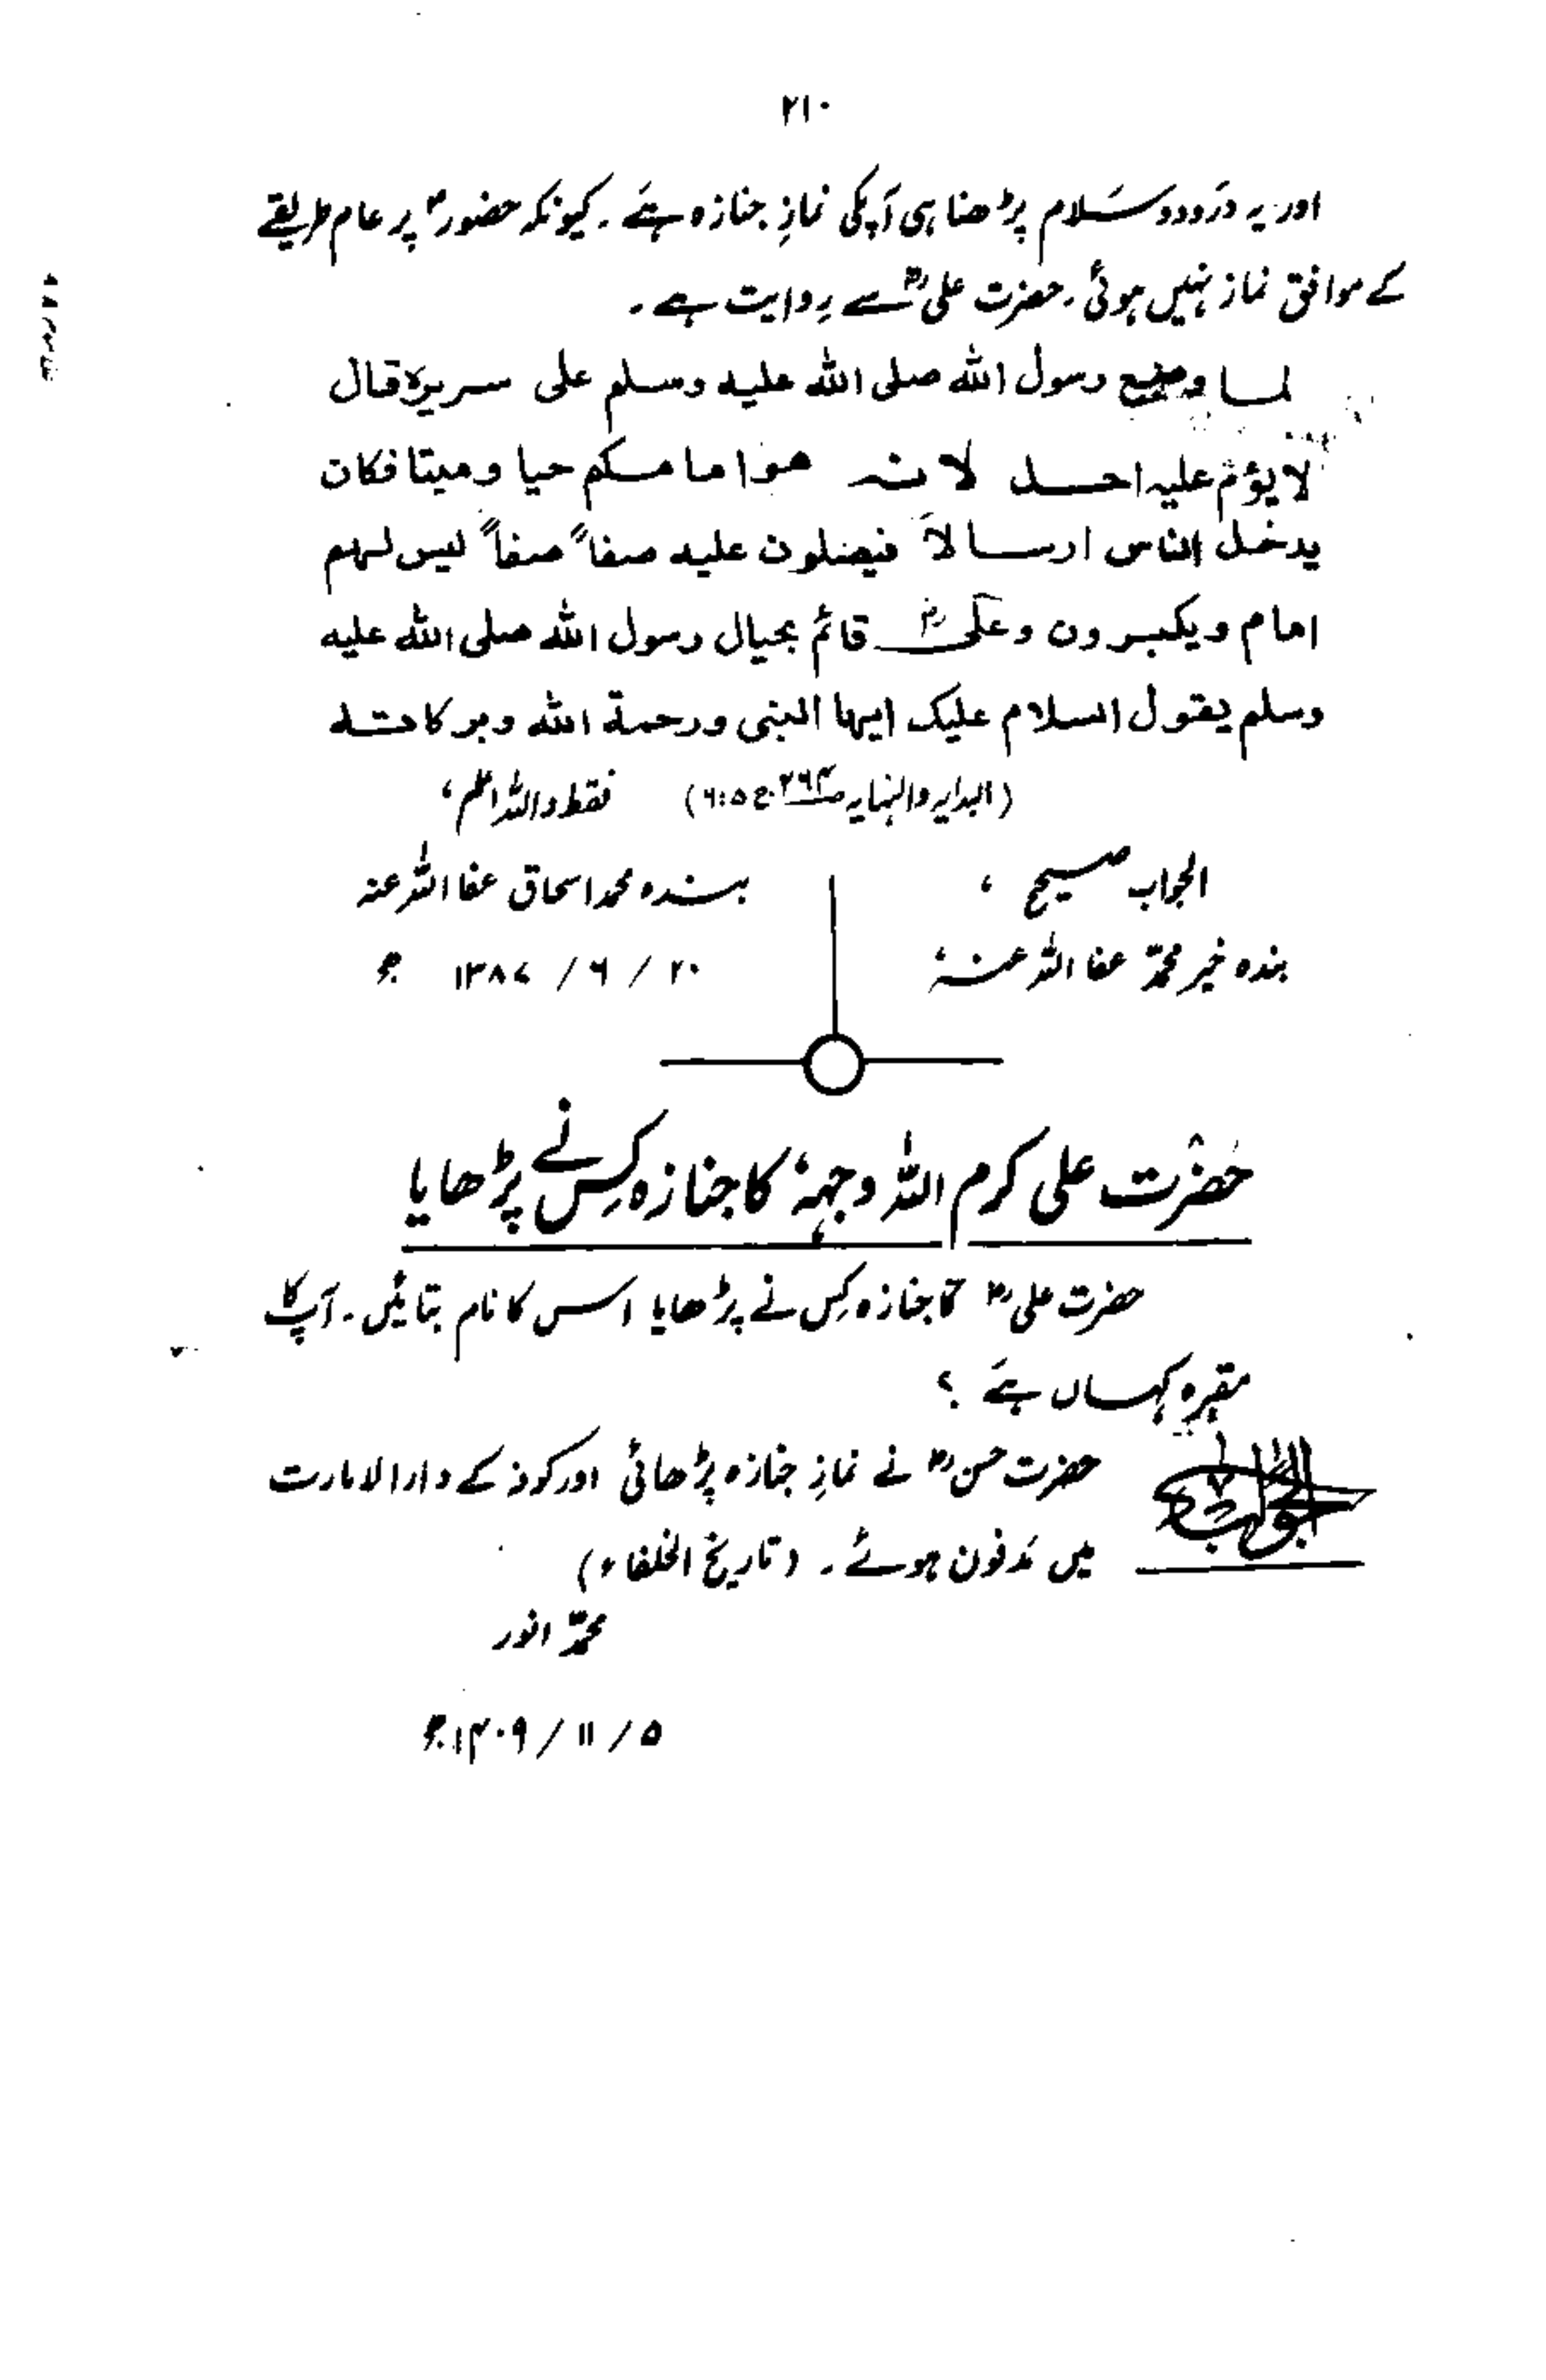 ۲۱۰
اور یہ درود و سَلام پڑھنا ہی آپؐ کی نمازِ جنازہ ہے ۔ کیونکہ حضورؐ پر عام طریقے
کے موافق نماز نہیں ہوئی ۔ حضرت علیؓ سے رِوایت ہے ۔
لما وضع رسول الله صلی الله علیه وسلم علی سریرہ قال
لا یؤم علیه احد لانه هو امامکم حیا و میتا فکان
یدخل الناس ارسالاً فیصلون علیه صفاً صفاً لیس لهم
امام ویکبرون وعلیؓ قائم بحیال رسول الله صلی الله علیه
وسلم یقول السلام علیک ایها النبی ورحمة الله وبرکاته
(البدایہ والنہایہ ج ۵ : ۶) فقط واللہ اعلم ،
الجواب صحیح ،
بندہ خیر محمدؐ عفا اللہ عنہ ،
بندہ محمد اسحاق عفا اللہ عنہ
۲۰ / ۶ / ۱۳۸۷ ھ
حضرت علی کرم اللہ وجہہٗ کا جنازہ کِس نے پڑھایا
حضرت علیؓ کا جنازہ کِس نے پڑھایا اس کا نام بتائیں ۔ آپؓ کا
مقبرہ کہاں ہے ؟
الجواب
حضرت حسنؓ نے نمازِ جنازہ پڑھائی اور کوفہ کے دار الامارت
میں مدفون ہوئے ۔ (تاریخ الخلفاء)
محمدؐ انور
۵ / ۱۱ / ۱۴۰۹ ھ